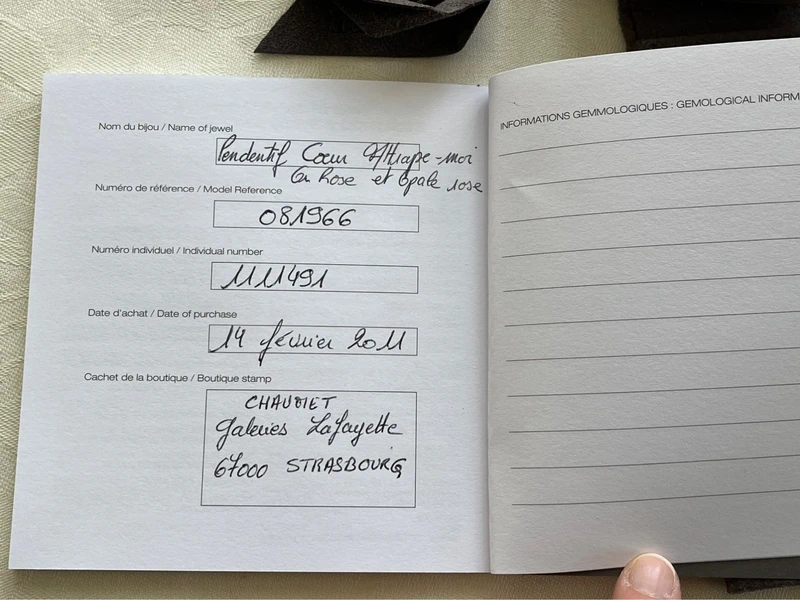 Nom du bijou / Name of jewel
Pendentif Cœur Attrape-moi
Or Rose et Opale rose
Numéro de référence / Model Reference
081966
Numéro individuel / Individual number
111491
Date d'achat / Date of purchase
14 février 2011
Cachet de la boutique / Boutique stamp
CHAUMET
Galeries Lafayette
67000 STRASBOURG
INFORMATIONS GEMMOLOGIQUES : GEMOLOGICAL INFORM